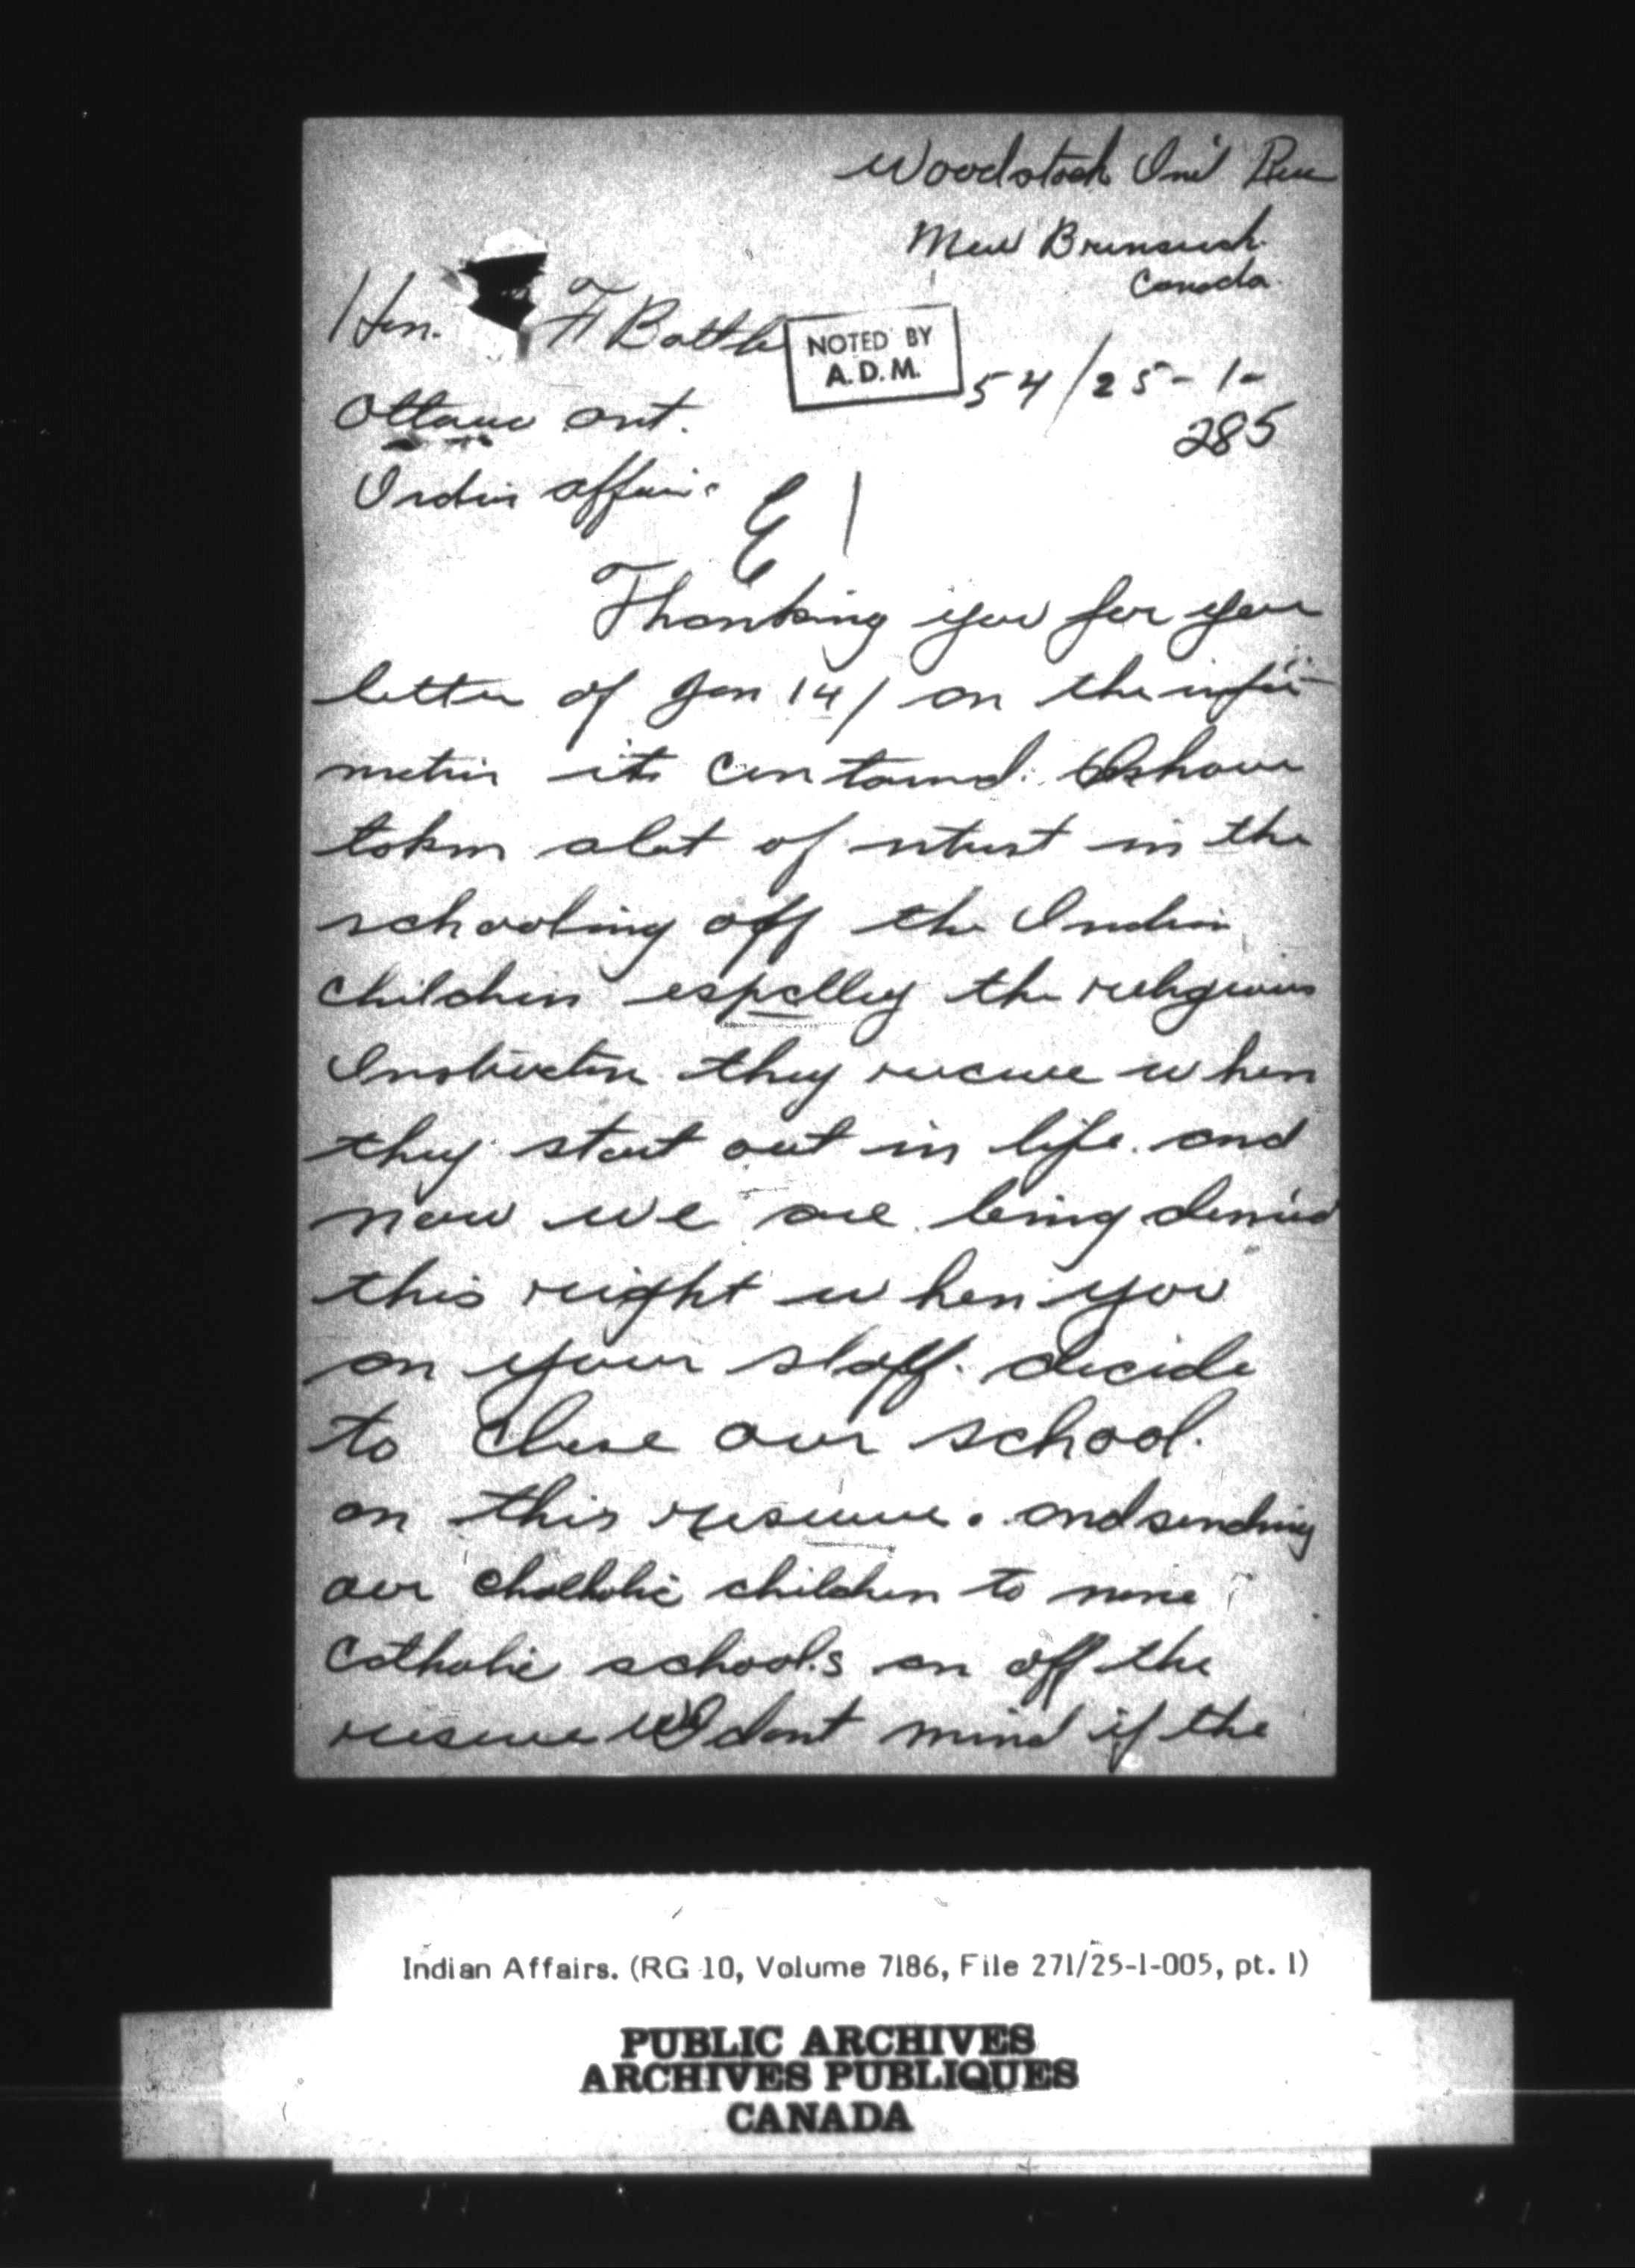 Woodstock Ind Res
New Brunswick
Canada
Hon. F Battle
NOTED BY
A.D.M.
54/25-1-
285
Ottawa ont.
Indin affairs
E 1
Thanking you for your
letter of Jan 14/ on the infor-
mation its contained. have
taken alot of intrust in the
schooling off the Indian
children espelley the religious
Instruction they recieve when
they start out in life. and
now we are being denied
this right when you
on your staff. decide
to close our school.
on this reserve. and sending
our Chatholic children to none
Catholic schools on off the
reserve dont mind if the
Indian Affairs. (RG 10, Volume 7186, File 271/25-1-005, pt. 1)
PUBLIC ARCHIVES
ARCHIVES PUBLIQUES
CANADA